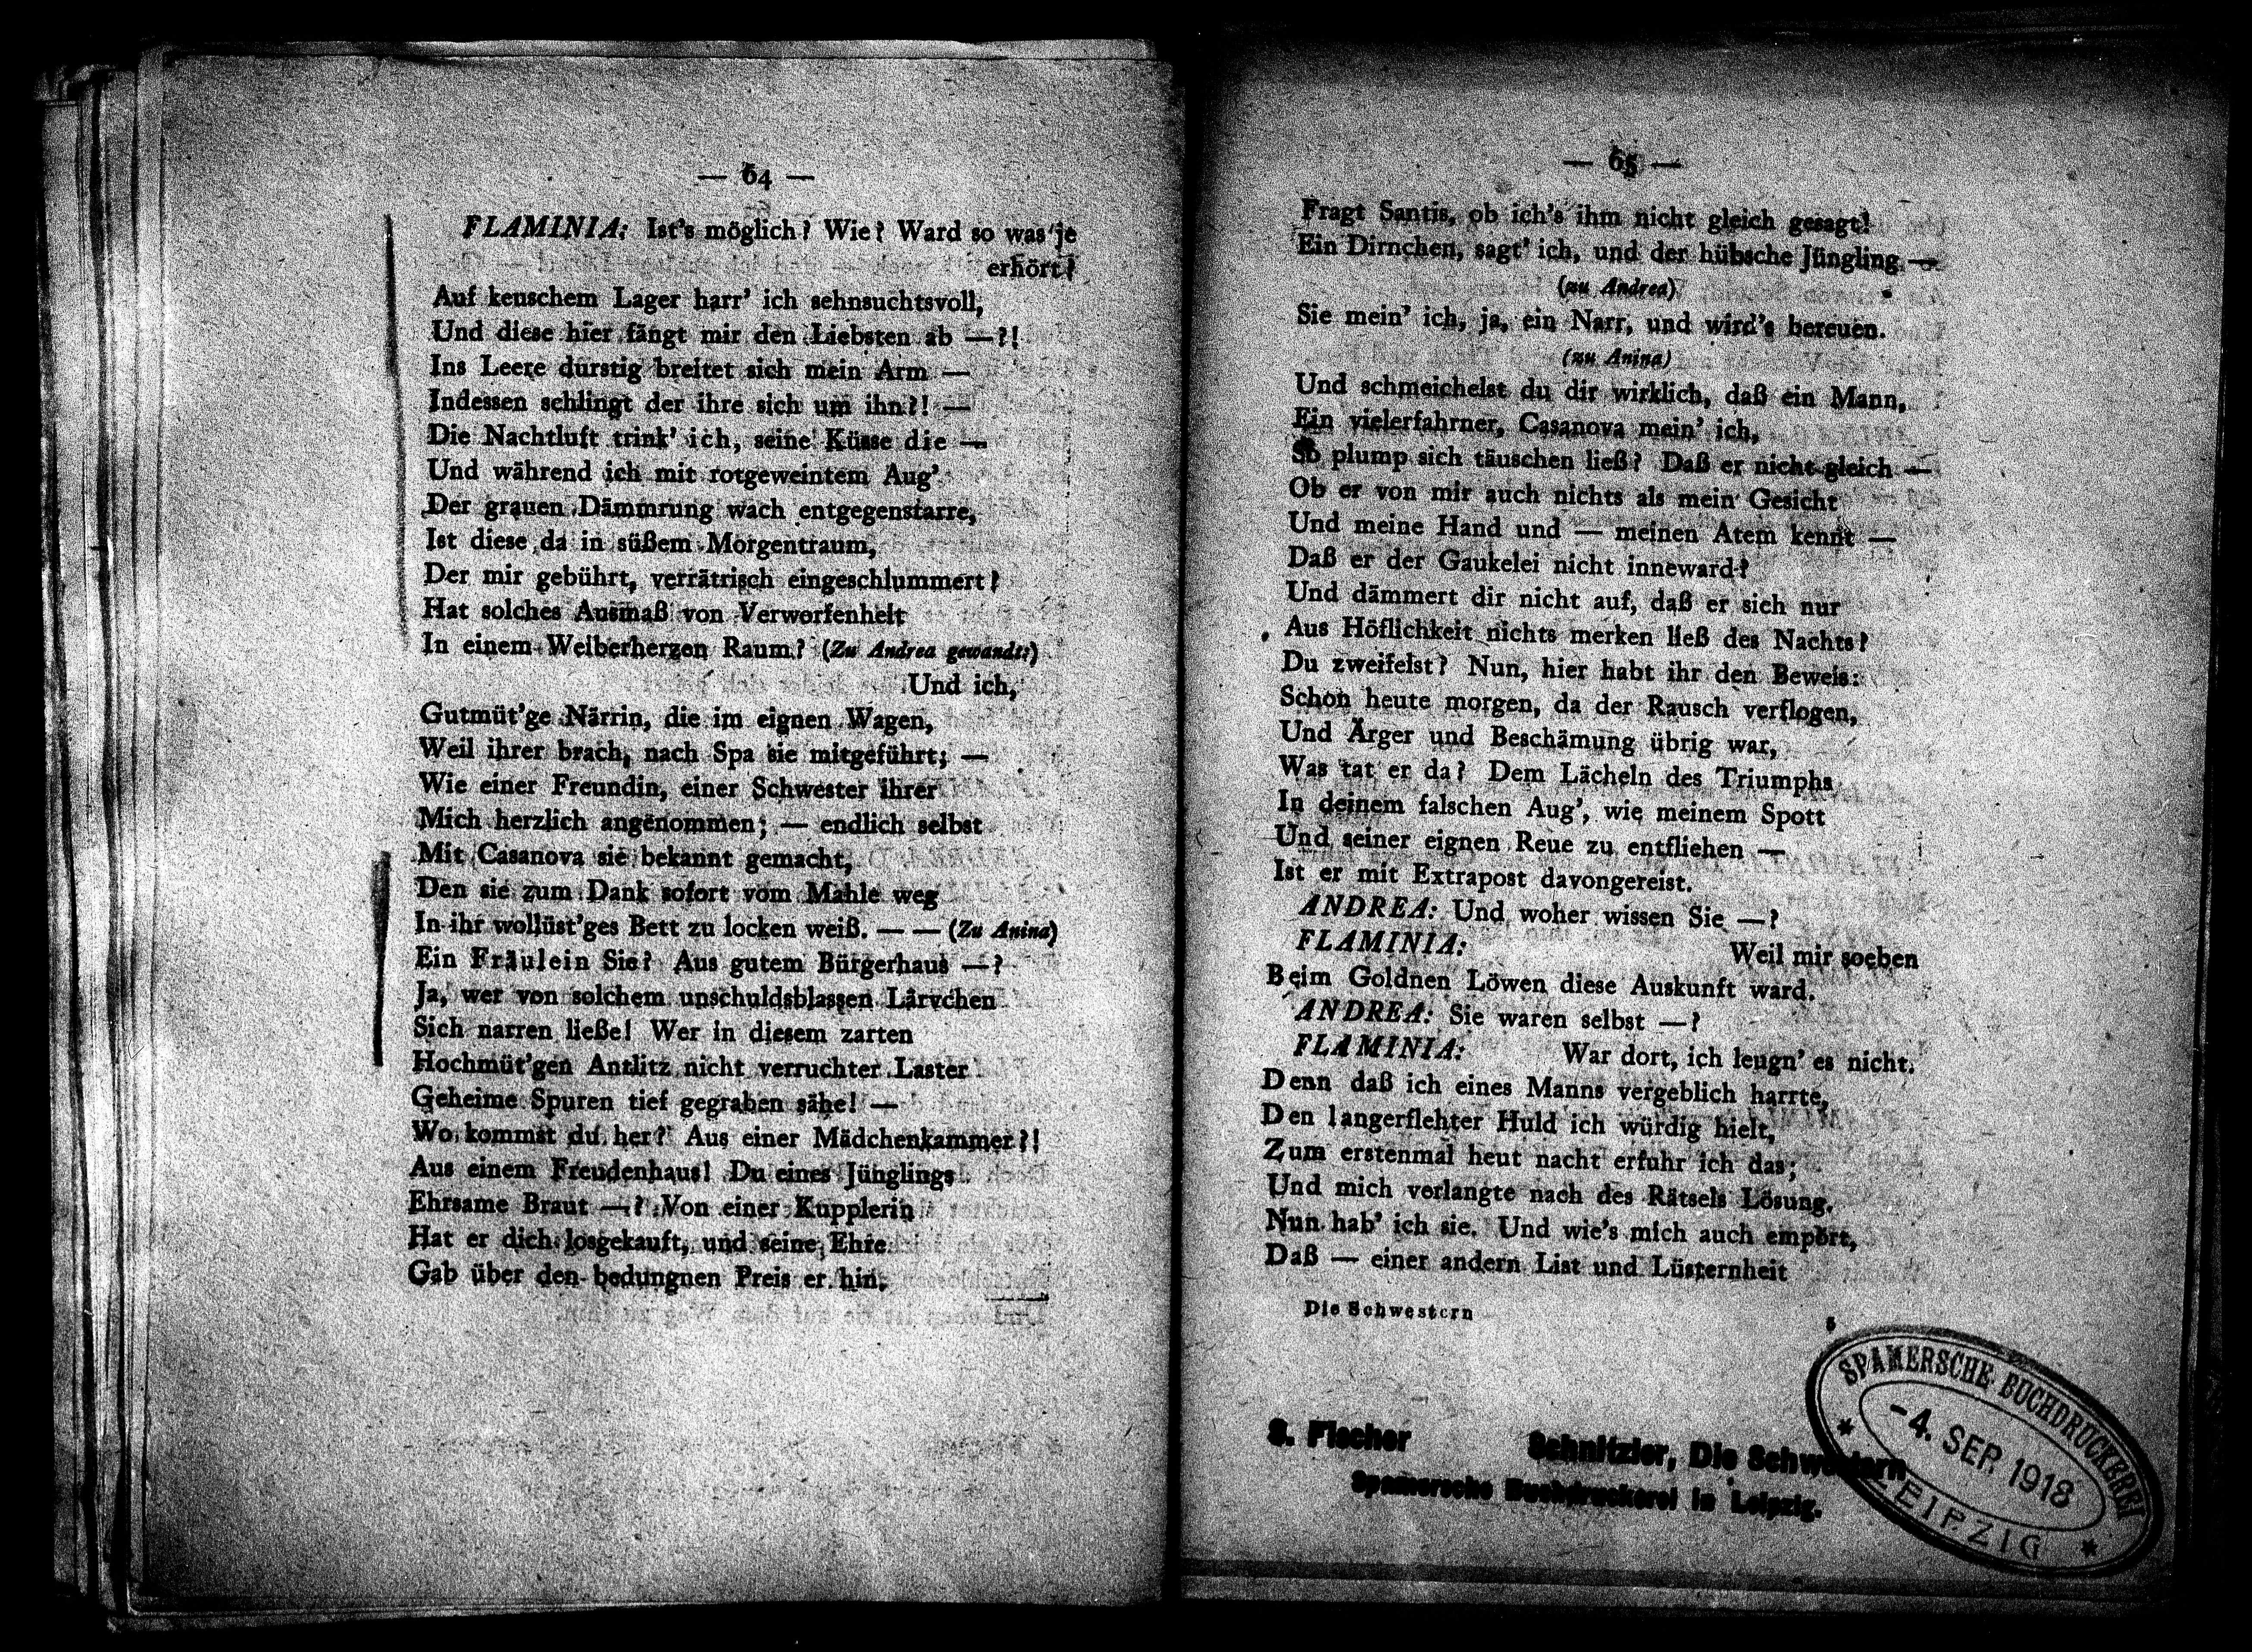 — 64 —
FLAMINIA: Ist's möglich? Wie? Ward so was je
erhört?
Auf keuschem Lager harr' ich sehnsuchtsvoll,
Und diese hier fängt mir den Liebsten ab —?!
Ins Leere durstig breitet sich mein Arm —
Indessen schlingt der ihre sich um ihn?! —
Die Nachtluft trink' ich, seine Küsse die —
Und während ich mit rotgeweintem Aug'
Der grauen Dämmrung wach entgegenstarre,
Ist diese da in süßem Morgentraum,
Der mir gebührt, verrätrisch eingeschlummert?
Hat solches Ausmaß von Verworfenheit
In einem Weiberherzen Raum? (Zu Andrea gewandt:)
Und ich,
Gutmüt'ge Närrin, die im eignen Wagen,
Weil ihrer brach, nach Spa sie mitgeführt; —
Wie einer Freundin, einer Schwester ihrer
Mich herzlich angenommen; — endlich selbst
Mit Casanova sie bekannt gemacht,
Den sie zum Dank sofort vom Mahle weg
In ihr wollüst'ges Bett zu locken weiß. — — (Zu Anina)
Ein Fräulein Sie? Aus gutem Bürgerhaus —?
Ja, wer von solchem unschuldsblassen Lärvchen
Sich narren ließe! Wer in diesem zarten
Hochmüt'gen Antlitz nicht verruchter Laster
Geheime Spuren tief gegraben sähe! —
Wo kommst du her? Aus einer Mädchenkammer?!
Aus einem Freudenhaus! Du eines Jünglings
Ehrsame Braut —? Von einer Kupplerin
Hat er dich losgekauft, und seine Ehre
Gab über den bedungnen Preis er hin.
— 65 —
Fragt Santis, ob ich's ihm nicht gleich gesagt!
Ein Dirnchen, sagt' ich, und der hübsche Jüngling —
(zu Andrea)
Sie mein' ich, ja, ein Narr, und wird's bereuen.
(zu Anina)
Und schmeichelst du dir wirklich, daß ein Mann,
Ein vielerfahrner, Casanova mein' ich,
So plump sich täuschen ließ? Daß er nicht gleich —
Ob er von mir auch nichts als mein Gesicht
Und meine Hand und — meinen Atem kennt —
Daß er der Gaukelei nicht inneward?
Und dämmert dir nicht auf, daß er sich nur
Aus Höflichkeit nichts merken ließ des Nachts?
Du zweifelst? Nun, hier habt ihr den Beweis:
Schon heute morgen, da der Rausch verflogen,
Und Ärger und Beschämung übrig war,
Was tat er da? Dem Lächeln des Triumphs
In deinem falschen Aug', wie meinem Spott
Und seiner eignen Reue zu entfliehen —
Ist er mit Extrapost davongereist.
ANDREA: Und woher wissen Sie —?
FLAMINIA: Weil mir soeben
Beim Goldnen Löwen diese Auskunft ward.
ANDREA: Sie waren selbst —?
FLAMINIA: War dort, ich leugn' es nicht.
Denn daß ich eines Manns vergeblich harrte,
Den langerflehter Huld ich würdig hielt,
Zum erstenmal heut nacht erfuhr ich das;
Und mich verlangte nach des Rätsels Lösung.
Nun hab' ich sie. Und wie's mich auch empört,
Daß — einer andern List und Lüsternheit
Die Schwestern 5
S. Fischer Schnitzler, Die Schwestern
Spamersche Buchdruckerei in Leipzig.
SPAMERSCHE BUCHDRUCKEREI
-4. SEP. 1918
* LEIPZIG *